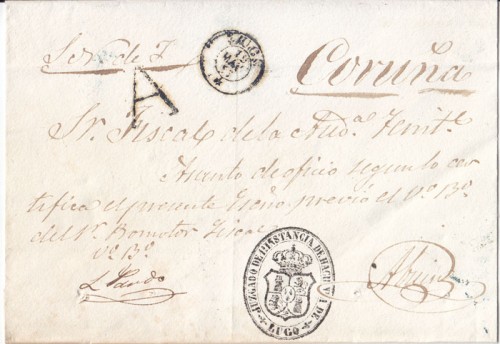 Serv. de J.
Coruña
LUGO
A
Sr. Fiscal de la Aud.ª Territ.l
Asunto de oficio segun lo cer
tifica el presente Esc.no previo el V.º B.º
del Sr. Promotor Fiscal
V.º B.º
L. Pardo
JUZGADO DE 1ª INSTANCIA DE HACIENDA DE
LUGO